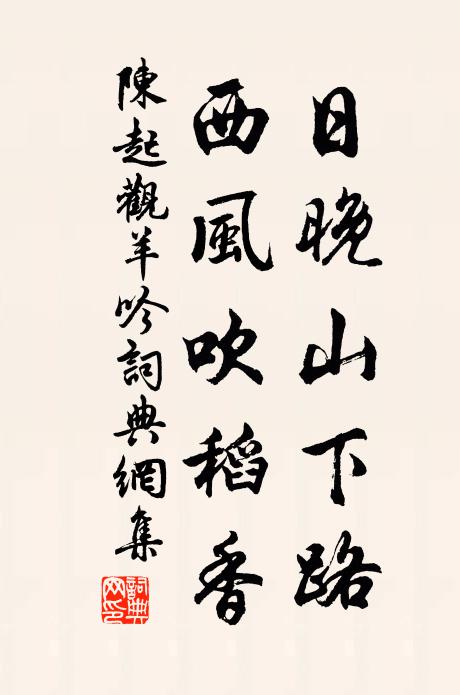 日晚山下路
西風吹稻香
陳起觀羊吟詞典網集
詞典网印